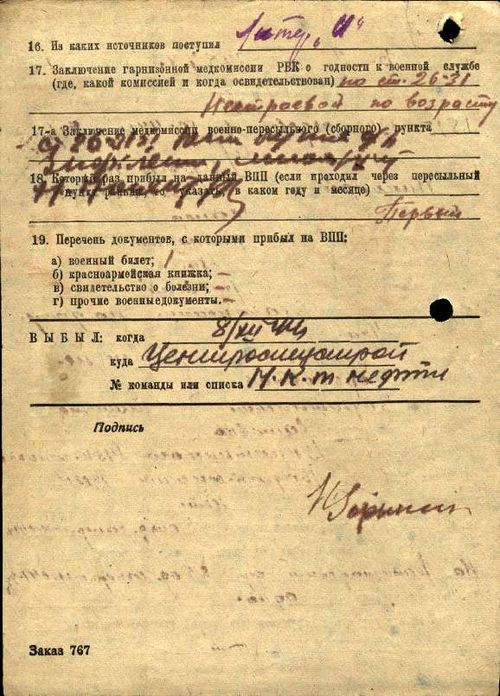 16. Из каких источников поступил Литер „И“
17. Заключение гарнизонной медкомиссии РВК о годности к военной службе
(где, какой комиссией и когда освидетельствован) по ст. 26-31
Нестроевой по возрасту
17-а Заключение медкомиссии военно-пересыльного (сборного) пункта
18. Который раз прибыл на данный ВПП (если проходил через пересыльный
пункт ранее, то указать, в каком году и месяце)
Первый
19. Перечень документов, с которыми прибыл на ВПП:
а) военный билет; 1
б) красноармейская книжка; —
в) свидетельство о болезни; —
г) прочие военные документы. —
ВЫБЫЛ: когда 8/XII 44
куда Центроспецстрой
№ команды или списка Н.К.т. нефти
Подпись
Заказ 767